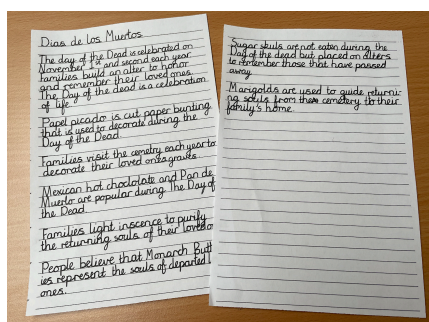 Dias de los Muertos
The day of the Dead is celebrated on
November 1st and second each year
families build an alter to honor
and remember their loved ones.
The Day of the dead is a celebration
of life.
Papel picado is cut paper bunting
that is used to decorate during the
Day of the Dead.
Families visit the cemetry each year to
decorate their loved ones graves.
Mexican hot choclolate and Pan de
Muerto are popular during The Day of
the Dead.
Families light inscence to purify
the returning souls of their loved
People believe that Monarch
ies represent the souls of departed
ones.
Sugar skulls are not eaten during the
Day of the dead but placed on alters
to remember those that have passed
away.
Marigolds are used to guide returni-
ng souls from the cemetery to their
family's home.